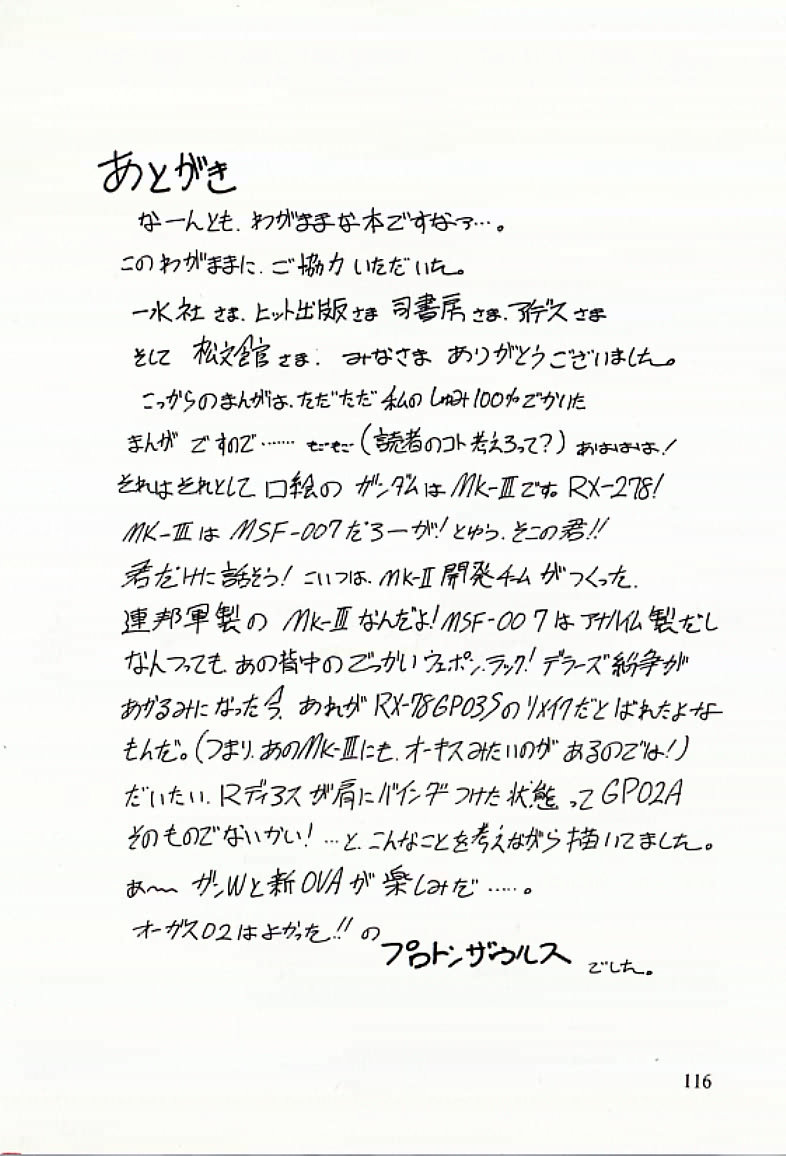 あとがき
なーんとも、わがままな本ですなァ…。
このわがままに、ご協力いただいた。
一水社さま、ヒット出版さま 司書房さま、アイデスさま
そして 松文館さま、みなさま ありがとうございました。
こっからのまんがは、ただただ 私の しゅみ100%でかいた
まんが ですので…… もごもご(読者のコト考えろって?) あはははは!
それはそれとして 口絵の ガンダムは MK-Ⅲです。RX-278!
MK-Ⅲは MSF-007だろーが!とゆう、そこの君!!
君だけに話そう! こいつは、MK-Ⅱ開発チームがつくった、
連邦軍製の MK-Ⅲなんだよ! MSF-007はアナハイム製だし
なんつっても、あの背中のごっかいウェポン、ラック! デラーズ紛争が
あかるみになった今、あれがRX-78GP03Sのリメイクだとばれたよーな
もんだ。(つまり、あのMK-Ⅲにも、オーキスみたいのがあるのでは!)
だいたい、Rディアスが肩にバインダつけた状態ってGP02A
そのものでないかい! …と、こんなことを考えながら描いてました。
あ〜 ガンWと新OVAが楽しみだ……。
オーガス02はよかった!! の
プロトンザウルス でした。
116